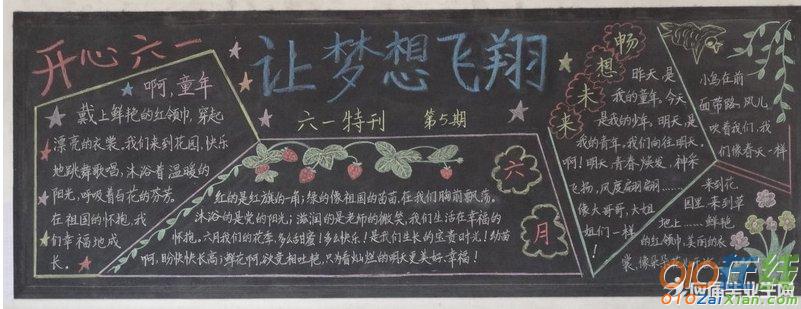 开心六一
让梦想飞翔
六一特刊 第5期
啊,童年
戴上鲜艳的红领巾,穿起
漂亮的衣裳。我们来到花园,快乐
地跳舞歌唱,沐浴着温暖的
阳光,呼吸着百花的芬芳。
在祖国的怀抱,我
们幸福地成
长。
六月
红的是红旗的一角;绿的像祖国的苗苗,在我们胸前飘荡。
沐浴的是党的阳光;滋润的是老师的微笑,我们生活在幸福的
怀抱。六月我们的花季,多么甜蜜!多么快乐!是我们生长的宝贵时光!幼苗
啊,盼快快长高;鲜花啊,欲竞相吐艳,只为看灿烂的明天更美好、幸福!
畅想未来
昨天,是
我的童年,今天
是我的少年,明天,是
我的青年,我们向往明天。
啊!明天,青春焕发,神采
飞扬,风度翩翩……
像大哥哥,大姐
姐们一样
小鸟在前
面带路,风儿
吹着我们,我
们像春天一样
来到花
园里,来到草
地上……鲜艳
的红领巾,美丽的衣
裳,像朵朵
910在线
910ZaiXian.com
应届毕业生网